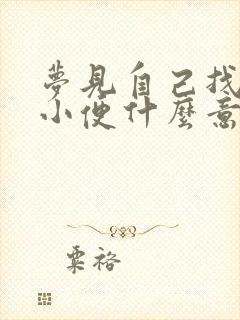 夢見自己找
小便什麼意
粟裕